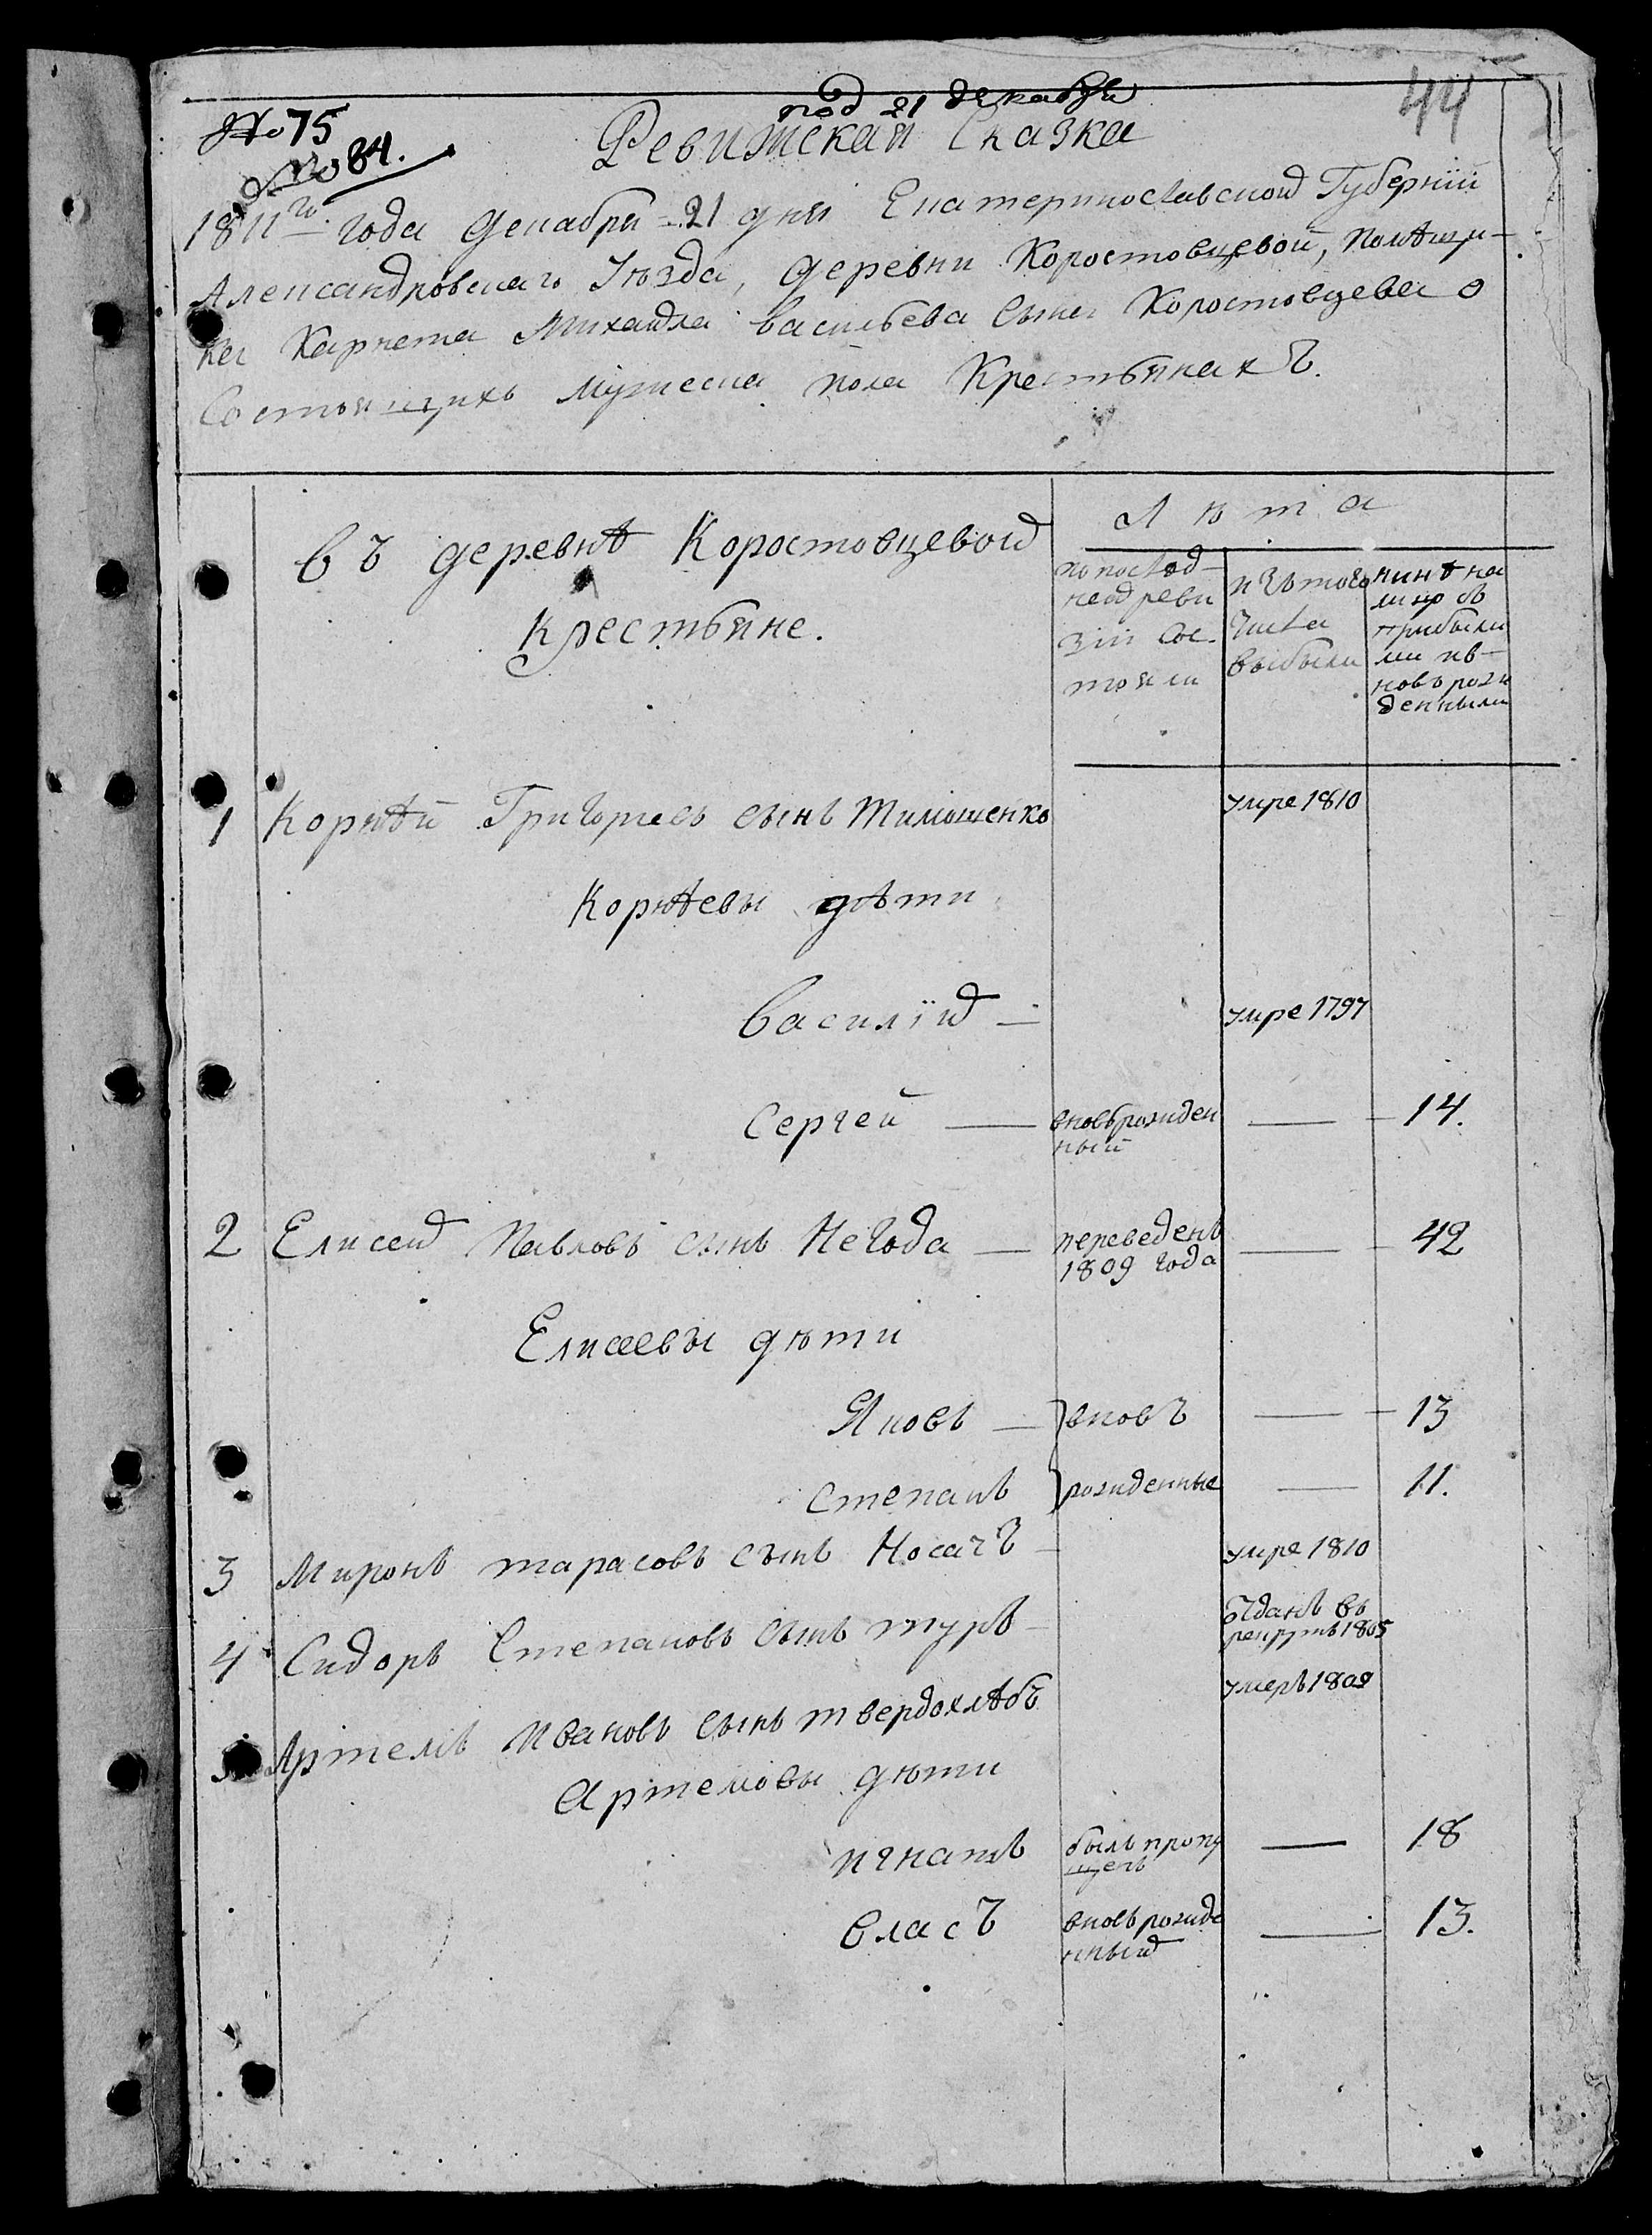 44
под 21 декабря
№ 75
№ 84.
Ревижская Сказка
1811го года декабря 21 дня Екатеринославской Губернїи
Александровскаго Уѣзда, деревни Коростовцевой, помѣщи-
ка Карнета Михайла Васильева Сына Коростовцева о
Состоящихъ мужеска пола Крестьянахъ.
въ деревнѣ Коростовцевой
Крестьяне.
Лѣта
по послѣд-
ней реви
зїи сос-
тояли
изъ того
числа
выбыли
нинѣ на
лицо съ
прибылы
ми ив-
новь рож
денными
1 Корнѣй Григорьевъ сынъ Тимошенко умре 1810
Корнѣевы дѣти
Василїй — умре 1797
Сергей — вновьрожден — 14.
ный
2 Елисей Павловъ сынъ Негода — переведенъ — 42
1809 года
Елисеевы дѣти
Яковъ — вновъ — 13
Степанъ рожденные — 11.
3 Миронъ тарасовъ сынъ Носачъ — умре 1810
4 Сидоръ Степановъ сынъ туръ — отданъ въ
рекруты 1805
5 Артемъ Ивановъ сынъ твердохлѣбъ умеръ 1809
Артемовы дѣти
игнатъ былъ пропу — 18
щенъ
власъ вновърожде — 13.
нный